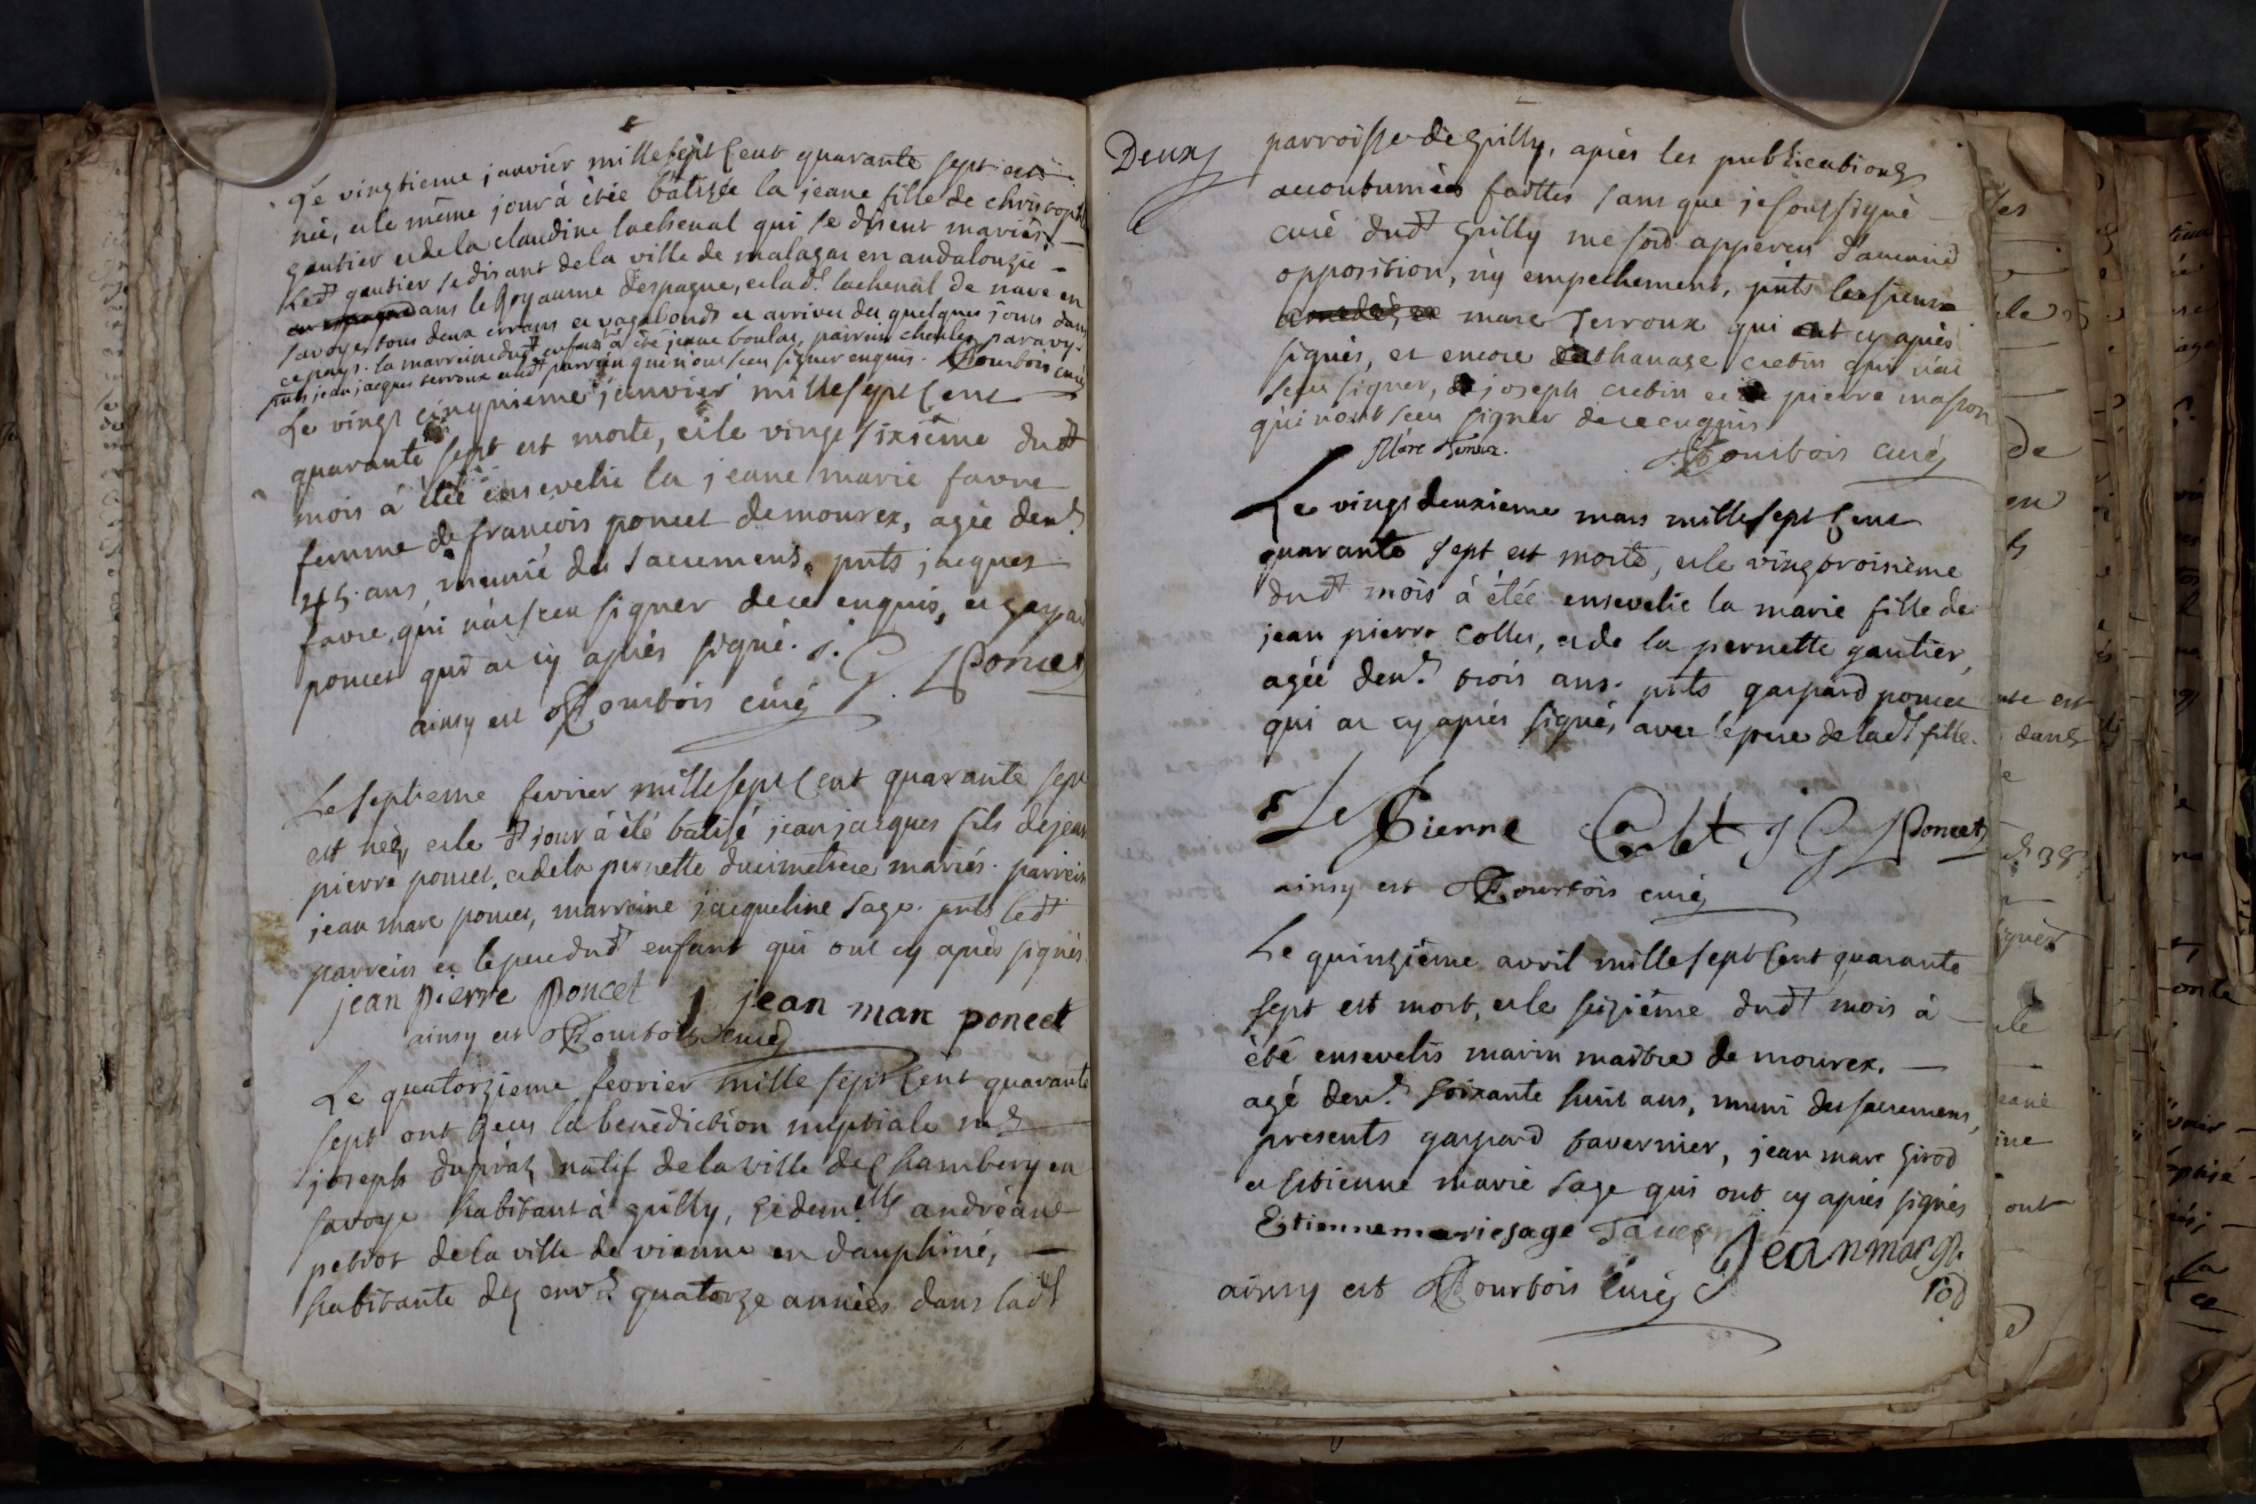 Le vingtieme janvier mille sept cent quarante sept est
née, et le même jour à étée batisée la jeane fille de christophe
gautier et de la claudine lachenal qui se disent mariés.
Led.t gautier se disant de la ville de malagar en andalouzie
dans le Royaume d'espagne, et lad.t lachenal de nave en
savoye, tous deux errans et vagabonds et arrives des quelques jours dans
ce pays. la marreine dud.t enfant à été jeane boulas, parrein charles paravy.
pnts jean jacques terroux et led.t parrein qui n'ont sceu signer enquis. Bourbois curé
Le vingt cinquieme janvier mille sept cent
quarante sept est morte, et le vingt sixième dud.t
mois à étée ensevelie la jeane marie favre
femme de francois poncet de mourex, agée denv.
45. ans, munie des sacremens. pnts jacques
favre, qui n'a sceu signer de ce enquis, et gaspar
poncet qui at cy aprés signé. J. G. Poncet
ainsy est Bourbois curé
Le septieme fevrier mille sept cent quarante sept
est néz, et le d.t jour à été batisé jean jacques fils de jean
pierre poncet, et de la pernette ducimetiere mariés. parrein
jean marc poncet, marreine jacqueline sage. pnts led.t
parrein et le pere dud.t enfant qui ont cy aprés signés
jean pierre Poncet jean marc poncet
ainsy est Bourbois curé
Le quatorzieme fevrier mille sept cent quarante
sept ont Reçu la benédiction nuptiale
joseph duprat, natif de la ville de Chambery en
savoye habitant à grilly, et dem.elle andréane
petrot de la ville de vienne en dauphiné,
habitante dez env. quatorze années dans lad.t
Deux
parroisse de grilly, aprés les publications
accoutumées faittes sans que je soussigné
curé dud.t grilly me sois apperçu d'aucune
opposition, ny empechement, pnts
marc Terroux qui at cy aprés
signés, et encore athanase cretin qui n'at
sceu signer, joseph cretin et pierre masson
qui n'ont sceu signer de ce enquis
Marc Terroux. Bourbois curé
Le vingt deuxieme mars mille sept cent
quarante sept est morte, et le vingt troisième
dud.t mois à étée ensevelie la marie fille de
jean pierre Collet, et de la pernette gautier,
agée denv. trois ans. pnts gaspard poncet
qui at cy aprés signés, avec le pere de lad.t fille.
Pierre Collet J G Poncet
ainsy est Bourbois curé
Le quinzième avril mille sept cent quarante
sept est mort, et le seizième dud.t mois à
été ensevelis marin maître de mourex.
agé denv. soixante huit ans, muni des sacremens,
presents gaspard tavernier, jean marc girod
et etienne marie sage qui ont cy aprés signés
Estienne marie sage Taver Jean marc gi
rod
ainsy est Bourbois curé